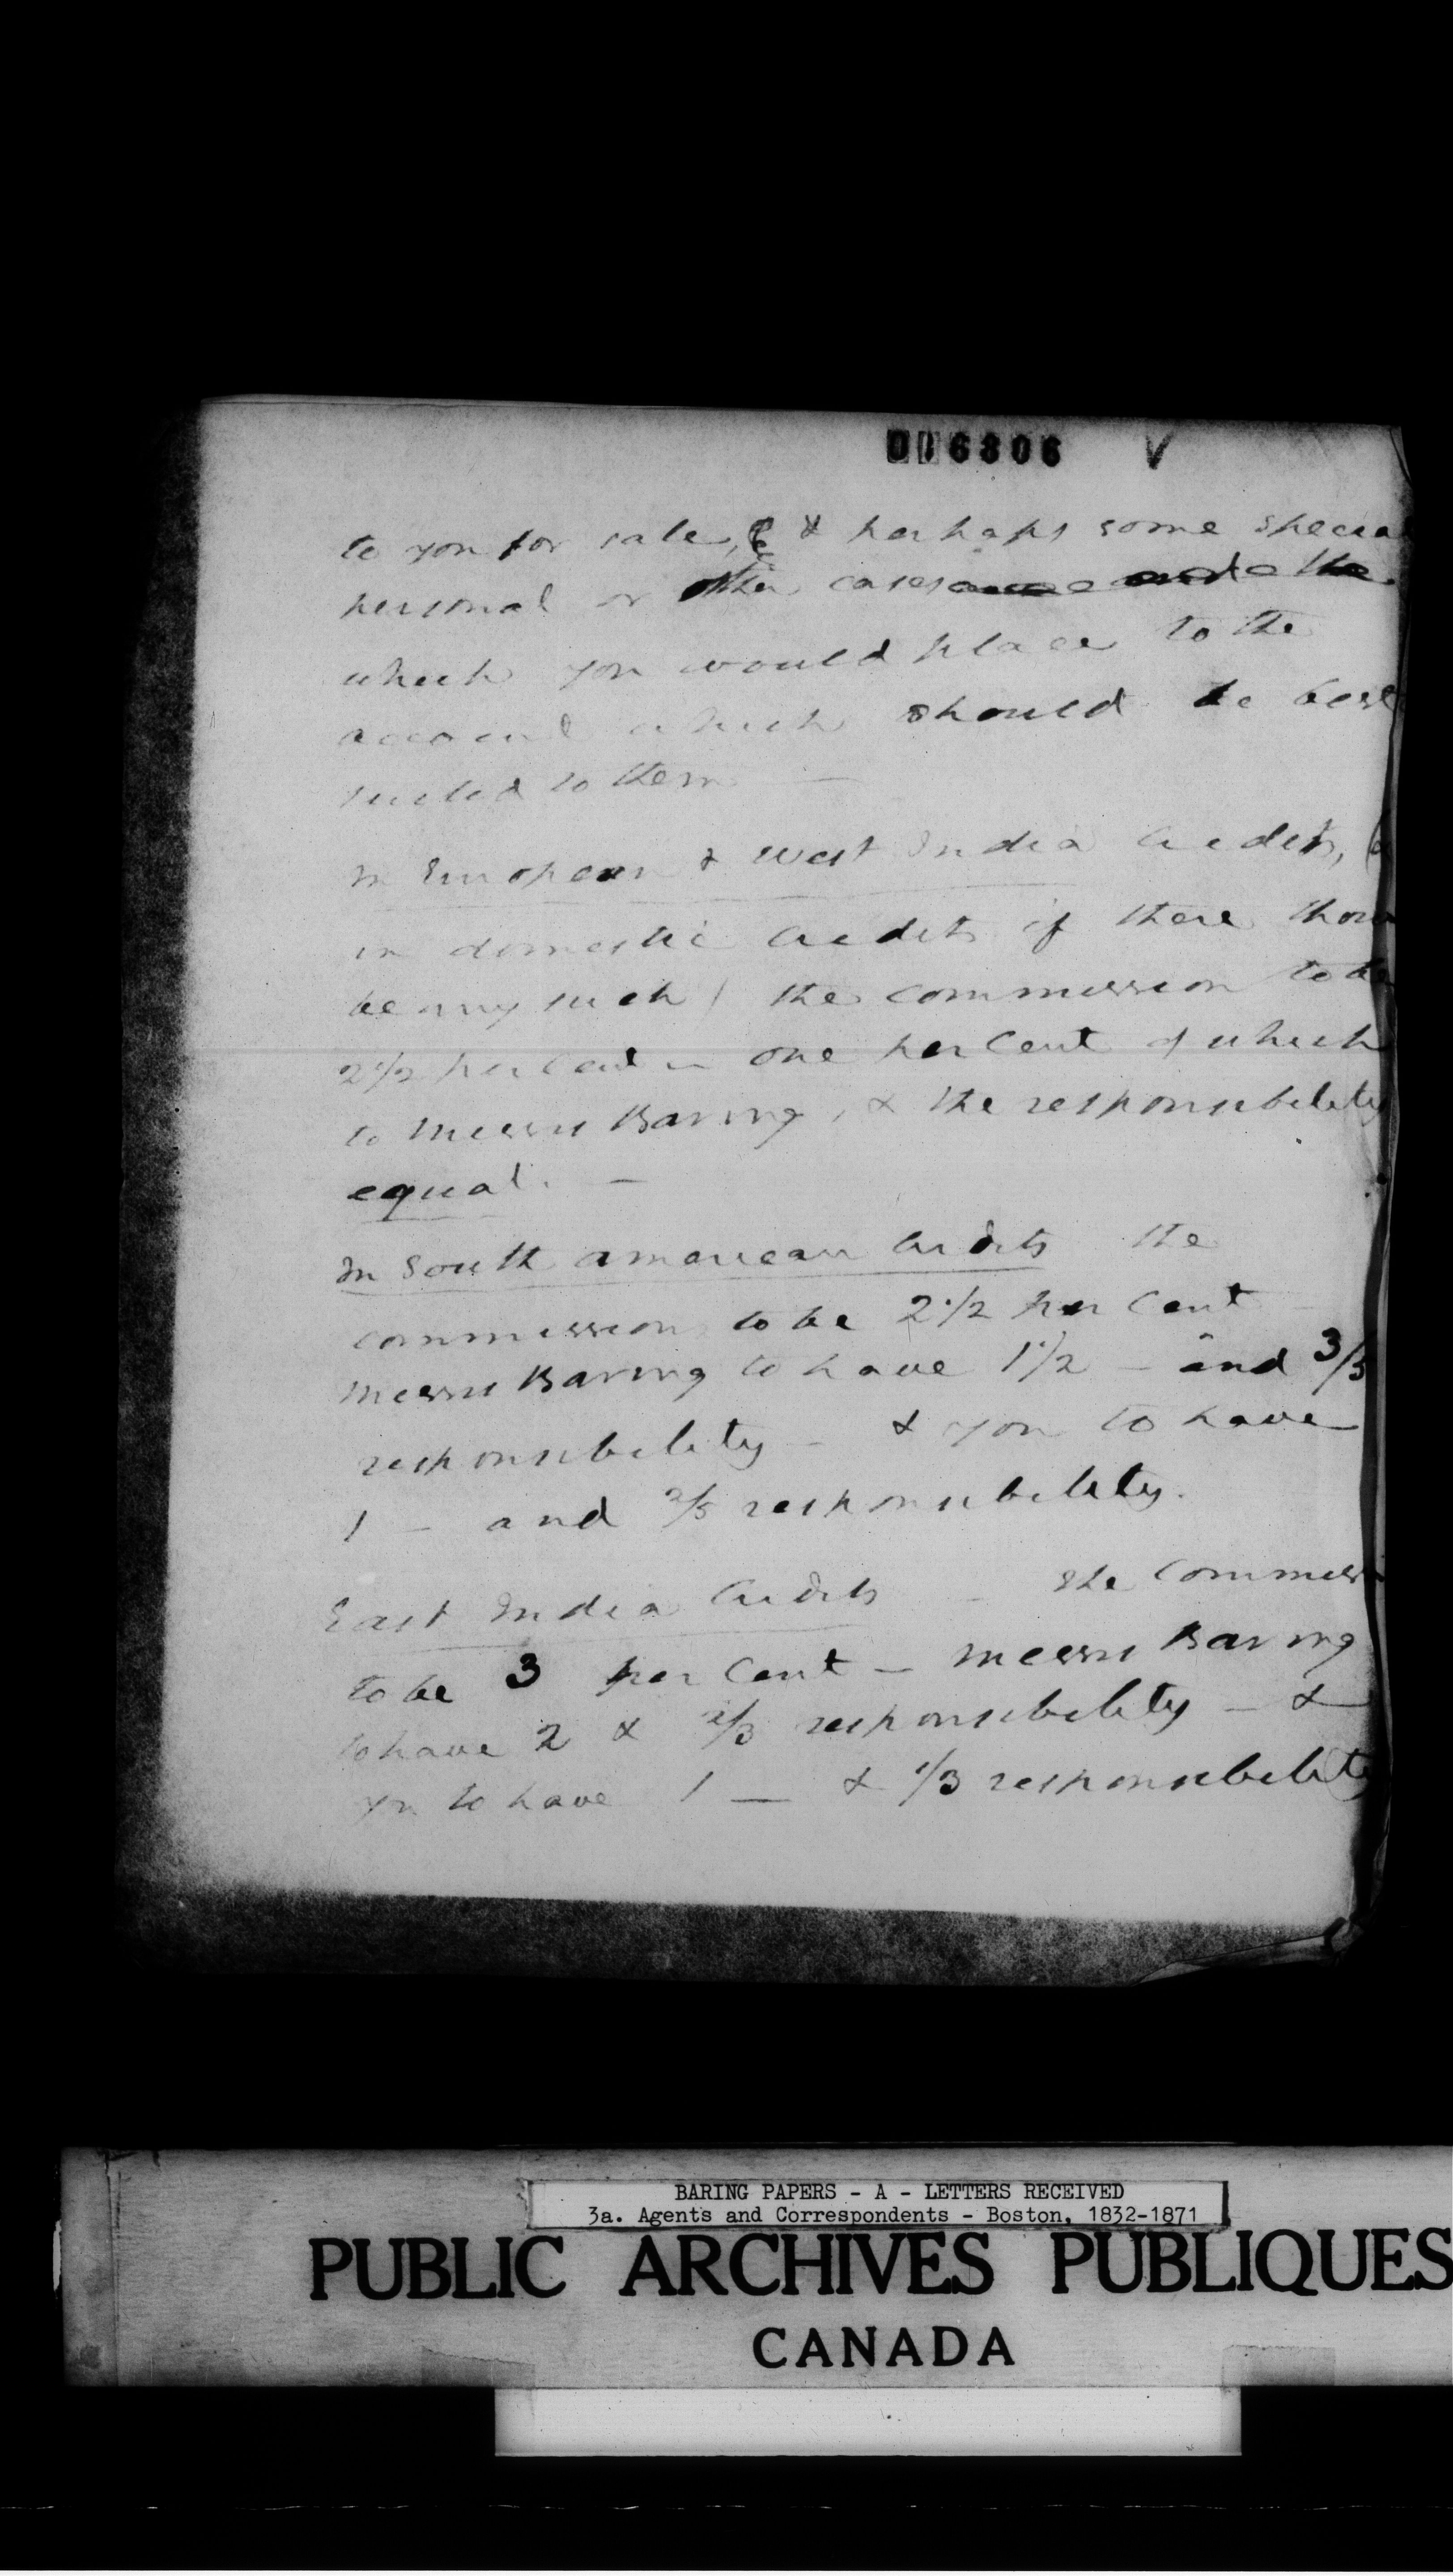 016306 V
to you for sale, & perhaps some specia
personal or other cases and the
which you would place to the
account which should be best
suited to them —
In European & West India Credits, (
in domestic Credits if there shou
be any such) the commission to be
2 1/2 per Cent — one per Cent of which
to Messrs Baring, & the responsibility
equal. —
In South american Credits the
commission to be 2 1/2 per Cent —
Messrs Baring to have 1 1/2 — and 3/5
responsibility — & you to have
1 — and 2/5 responsibility.
East India Credits — The Commissi
to be 3 per Cent — Messrs Baring
to have 2 & 2/3 responsibility — &
you to have 1 — & 1/3 responsibility
BARING PAPERS - A - LETTERS RECEIVED
3a. Agents and Correspondents - Boston, 1832-1871
PUBLIC ARCHIVES PUBLIQUES
CANADA